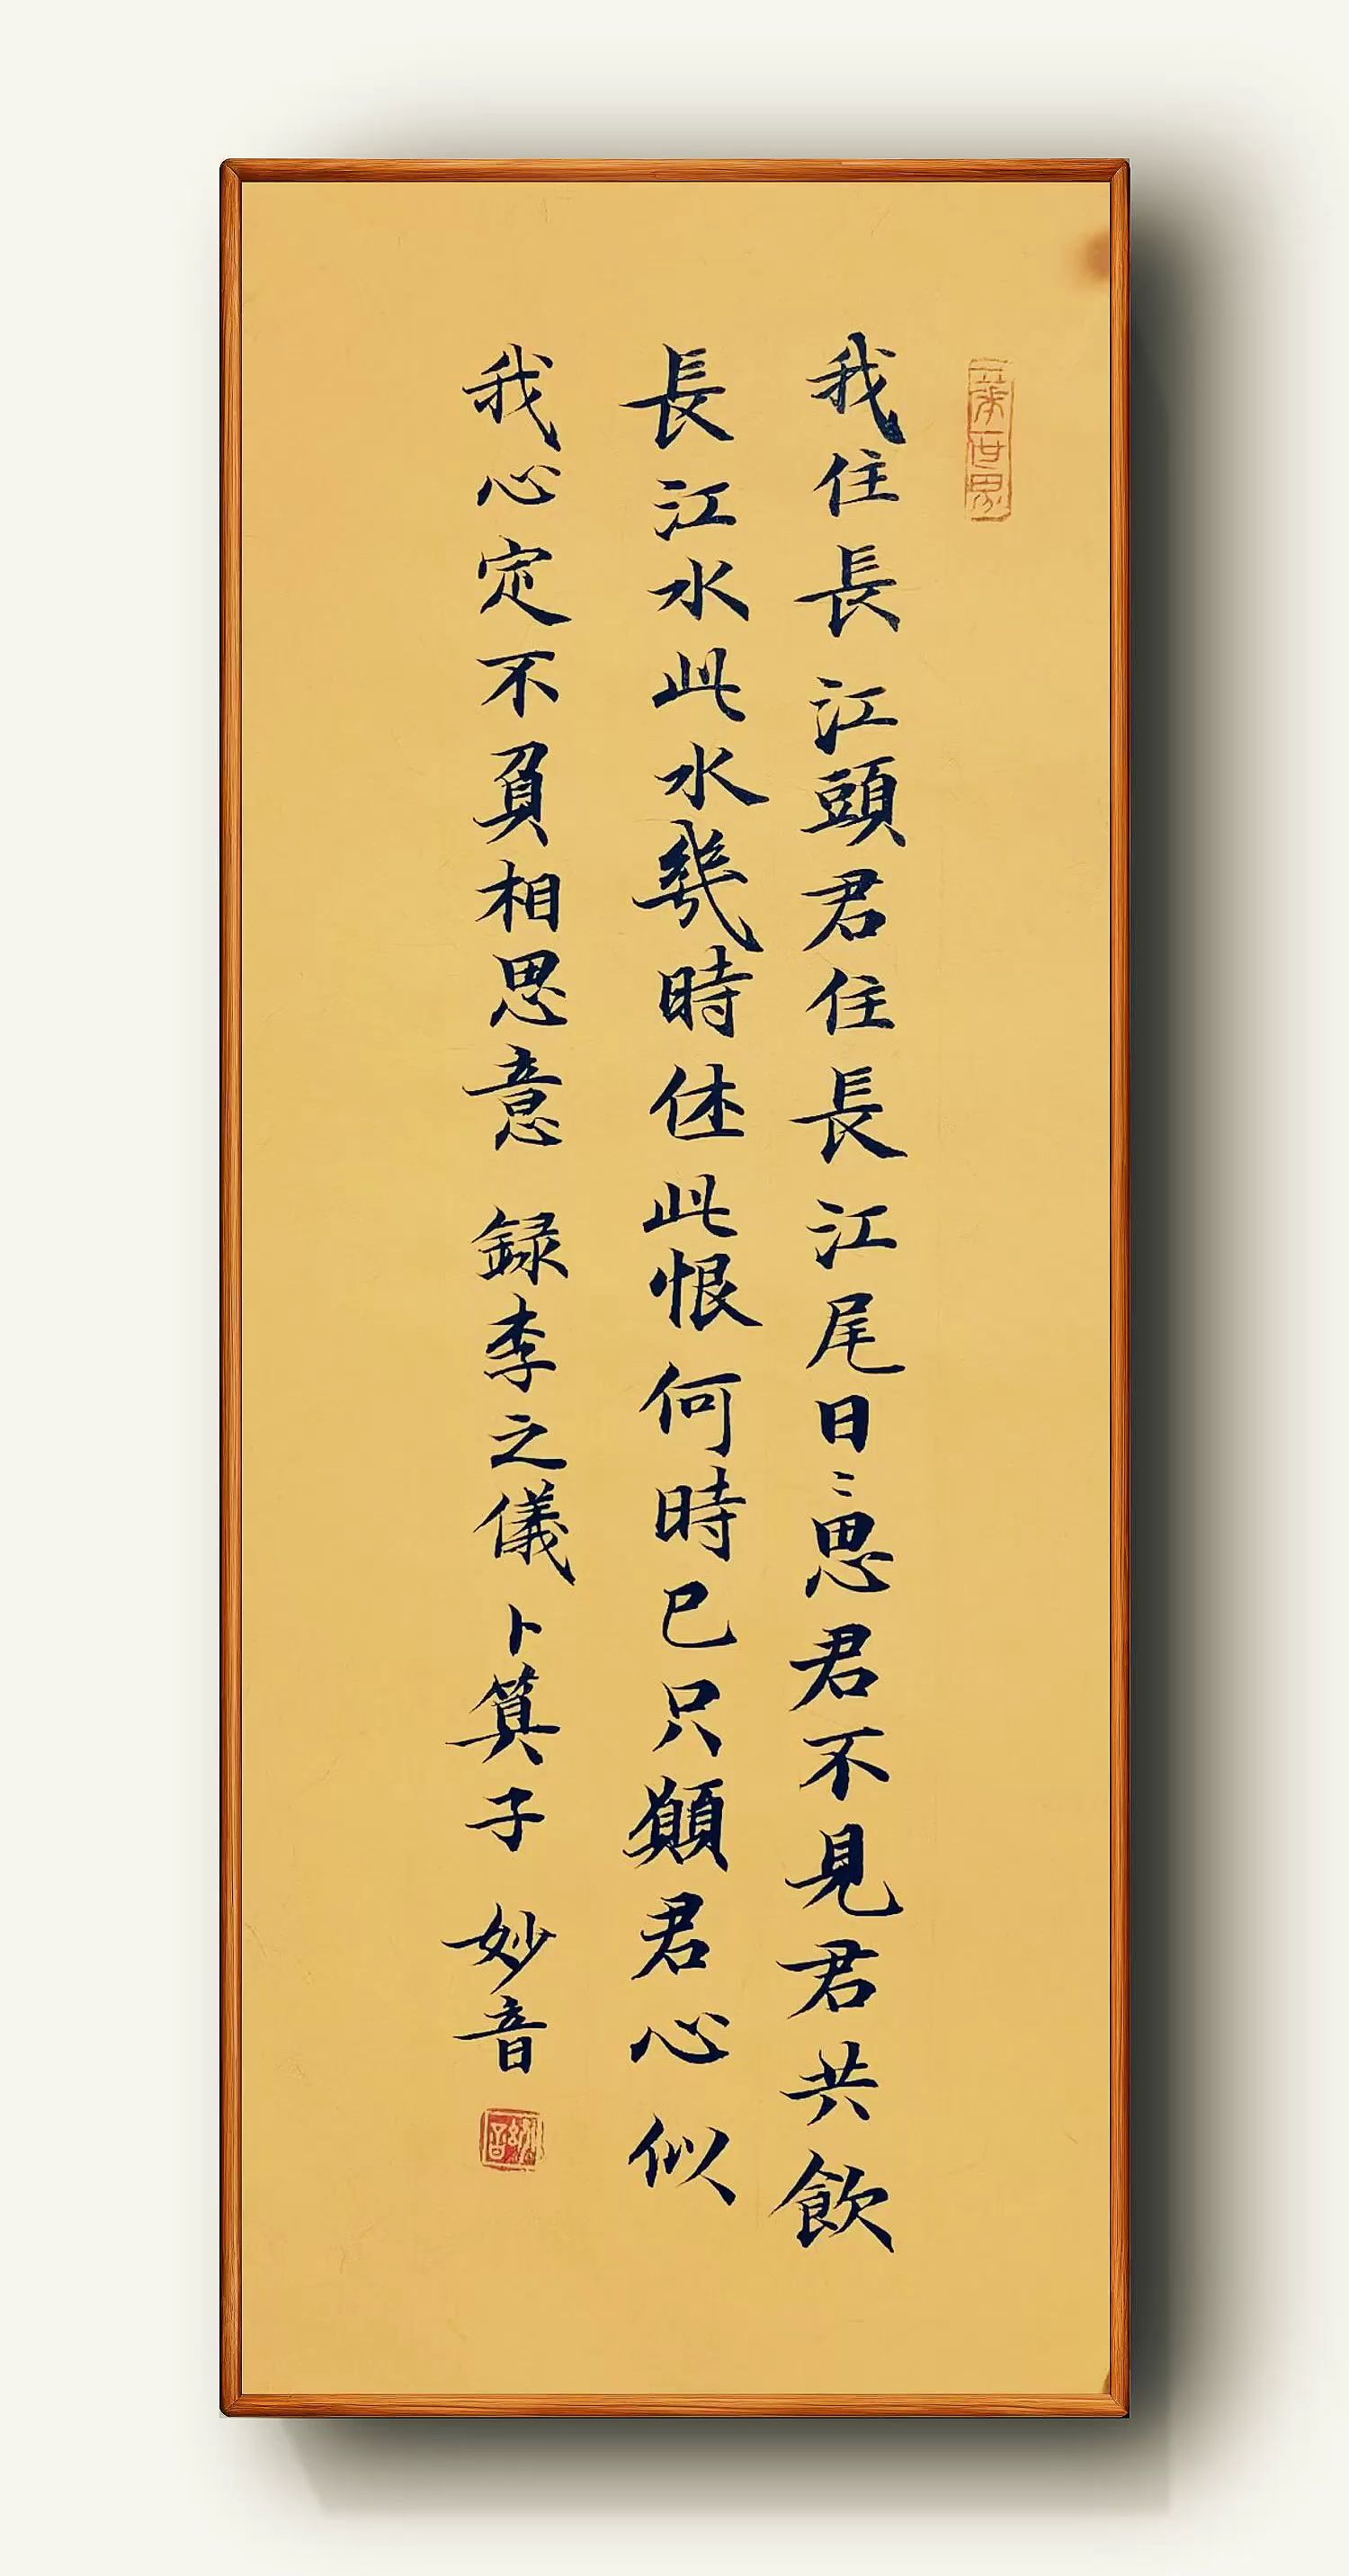 我住長江頭君住長江尾日〻思君不見君共飲
長江水此水幾時休此恨何時已只願君心似
我心定不負相思意 録李之儀卜算子 妙音
妙音